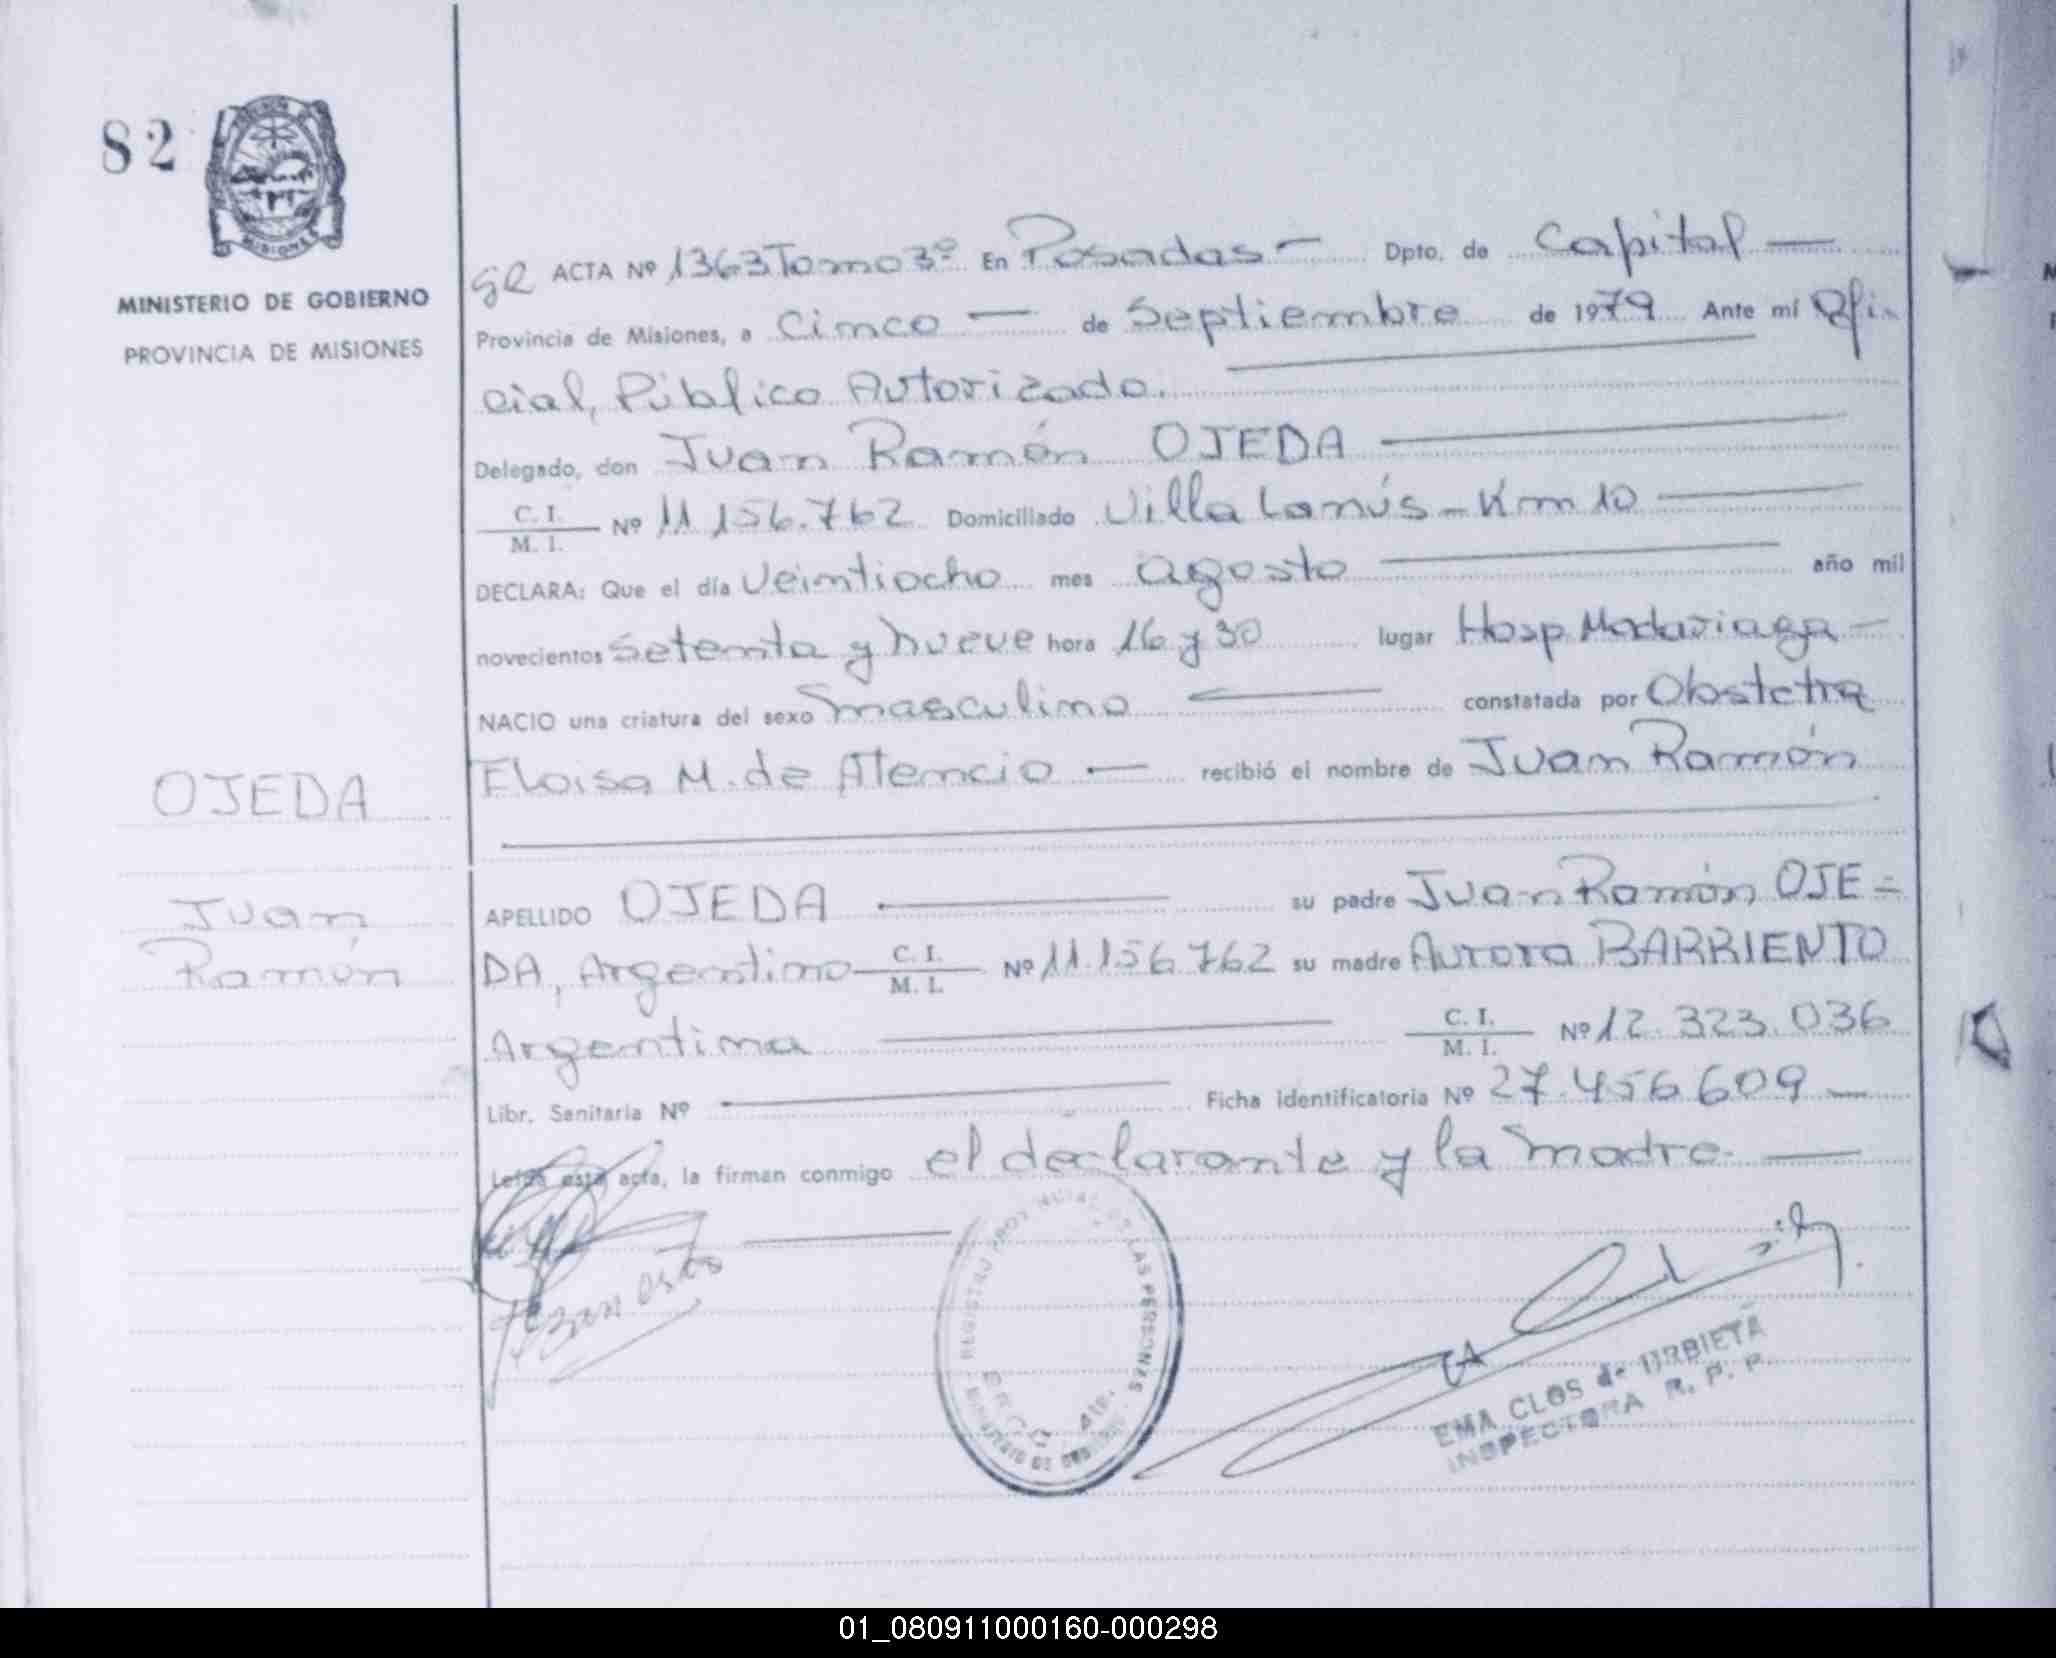 82
MISIONES
MINISTERIO DE GOBIERNO
PROVINCIA DE MISIONES
OJEDA
Juan
Ramón
ACTA Nº 1363 Tomo 3º En Posadas — Dpto. de Capital —
Provincia de Misiones, a Cinco — de Septiembre de 1979 Ante mí Ofi-
cial, Público Autorizado.
Delegado, don Juan Ramón OJEDA
C. I.
M. I. Nº 11.156.762 Domiciliado Villa Lanús - Km 10
DECLARA: Que el día Veintiocho mes agosto año mil
novecientos setenta y nueve hora 16 y 30 lugar Hosp. Madariaga -
NACIO una criatura del sexo masculino constatada por Obstetra
Eloisa M. de Atencio — recibió el nombre de Juan Ramón
APELLIDO OJEDA su padre Juan Ramón OJE=
DA, Argentino C. I.
M. I. Nº 11.156.762 su madre Aurora BARRIENTO
Argentina C. I.
M. I. Nº 12.323.036
Libr. Sanitaria Nº Ficha identificatoria Nº 27.456.609 —
Leída esta acta, la firman conmigo el declarante y la madre. —
REGISTRO PROVINCIAL DE LAS PERSONAS
MINISTERIO DE GOBIERNO
EMA CLOS de URBIETA
INSPECTORA R. P. P.
01_080911000160-000298